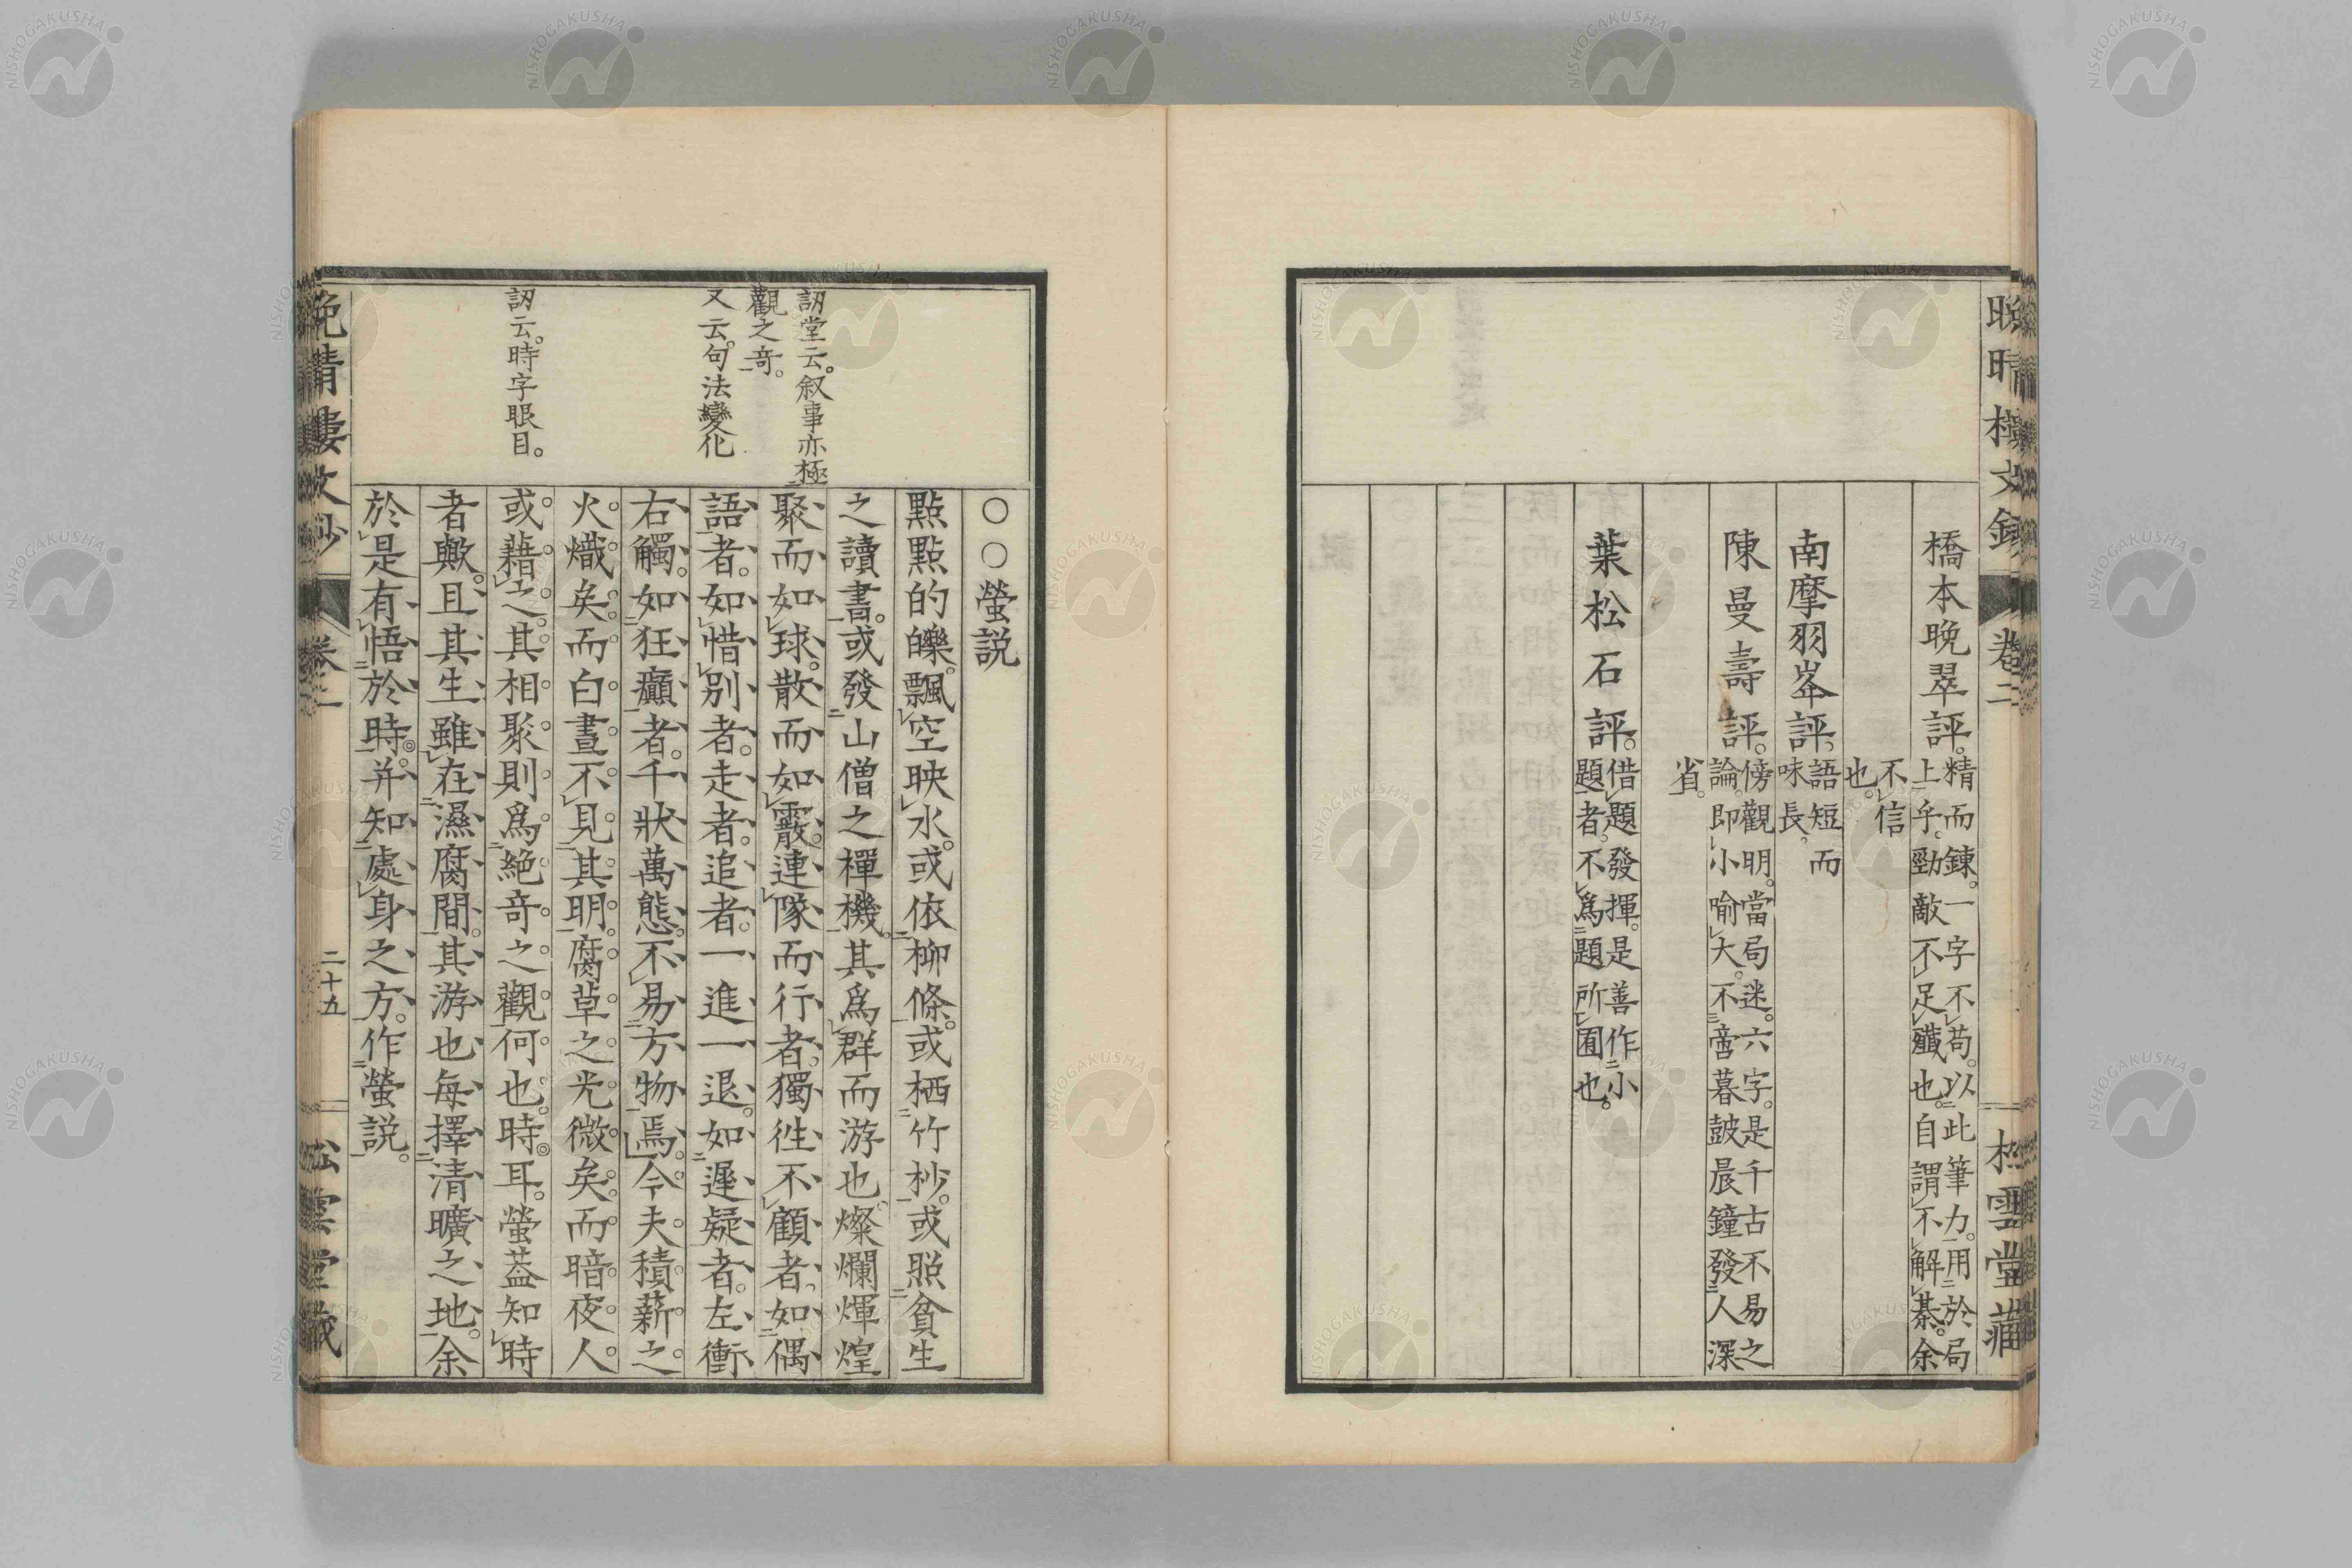 晩晴樓文鈔
卷二
松雲堂藏
橋本晩翠評。精而鍊。一字不苟。以此筆力。用於局
上乎。勁敵不足殲也。自謂不解棊。余
不信
也。
南摩羽峯評、語短而
味長。
陳曼壽評。傍觀明。當局迷。六字。是千古不易之
論。即小喻大。不啻暮皷晨鐘發人深
省。
葉松石評。借題發揮。是善作小
題者。不爲題所囿也。
訒堂云。叙事亦極
觀之奇。
又云。句法變化
訒云。時字眼目。
○○螢説
點點的皪。飄空映水。或依柳條。或栖竹杪。或照貧生
之讀書。或發山僧之禪機。其爲群而游也。燦爛煇煌
聚而如球。散而如霰。連隊而行者。獨徃不顧者、如偶
語者。如惜別者。走者。追者。一進一退。如遲疑者。左衝
右觸。如狂癲者。千狀萬態。不易方物焉。今夫積薪之
火熾矣。而白晝不見其明。腐草之光微矣。而暗夜人
或藉之。其相聚則爲絶奇之觀何也。時耳。螢蓋知時
者歟。且其生雖在濕腐間。其游也每擇清曠之地。余
於是有悟於時。并知處身之方。作螢説。
晩晴樓文鈔
卷二
二十五
松雲堂藏
NISHOGAKUSHA